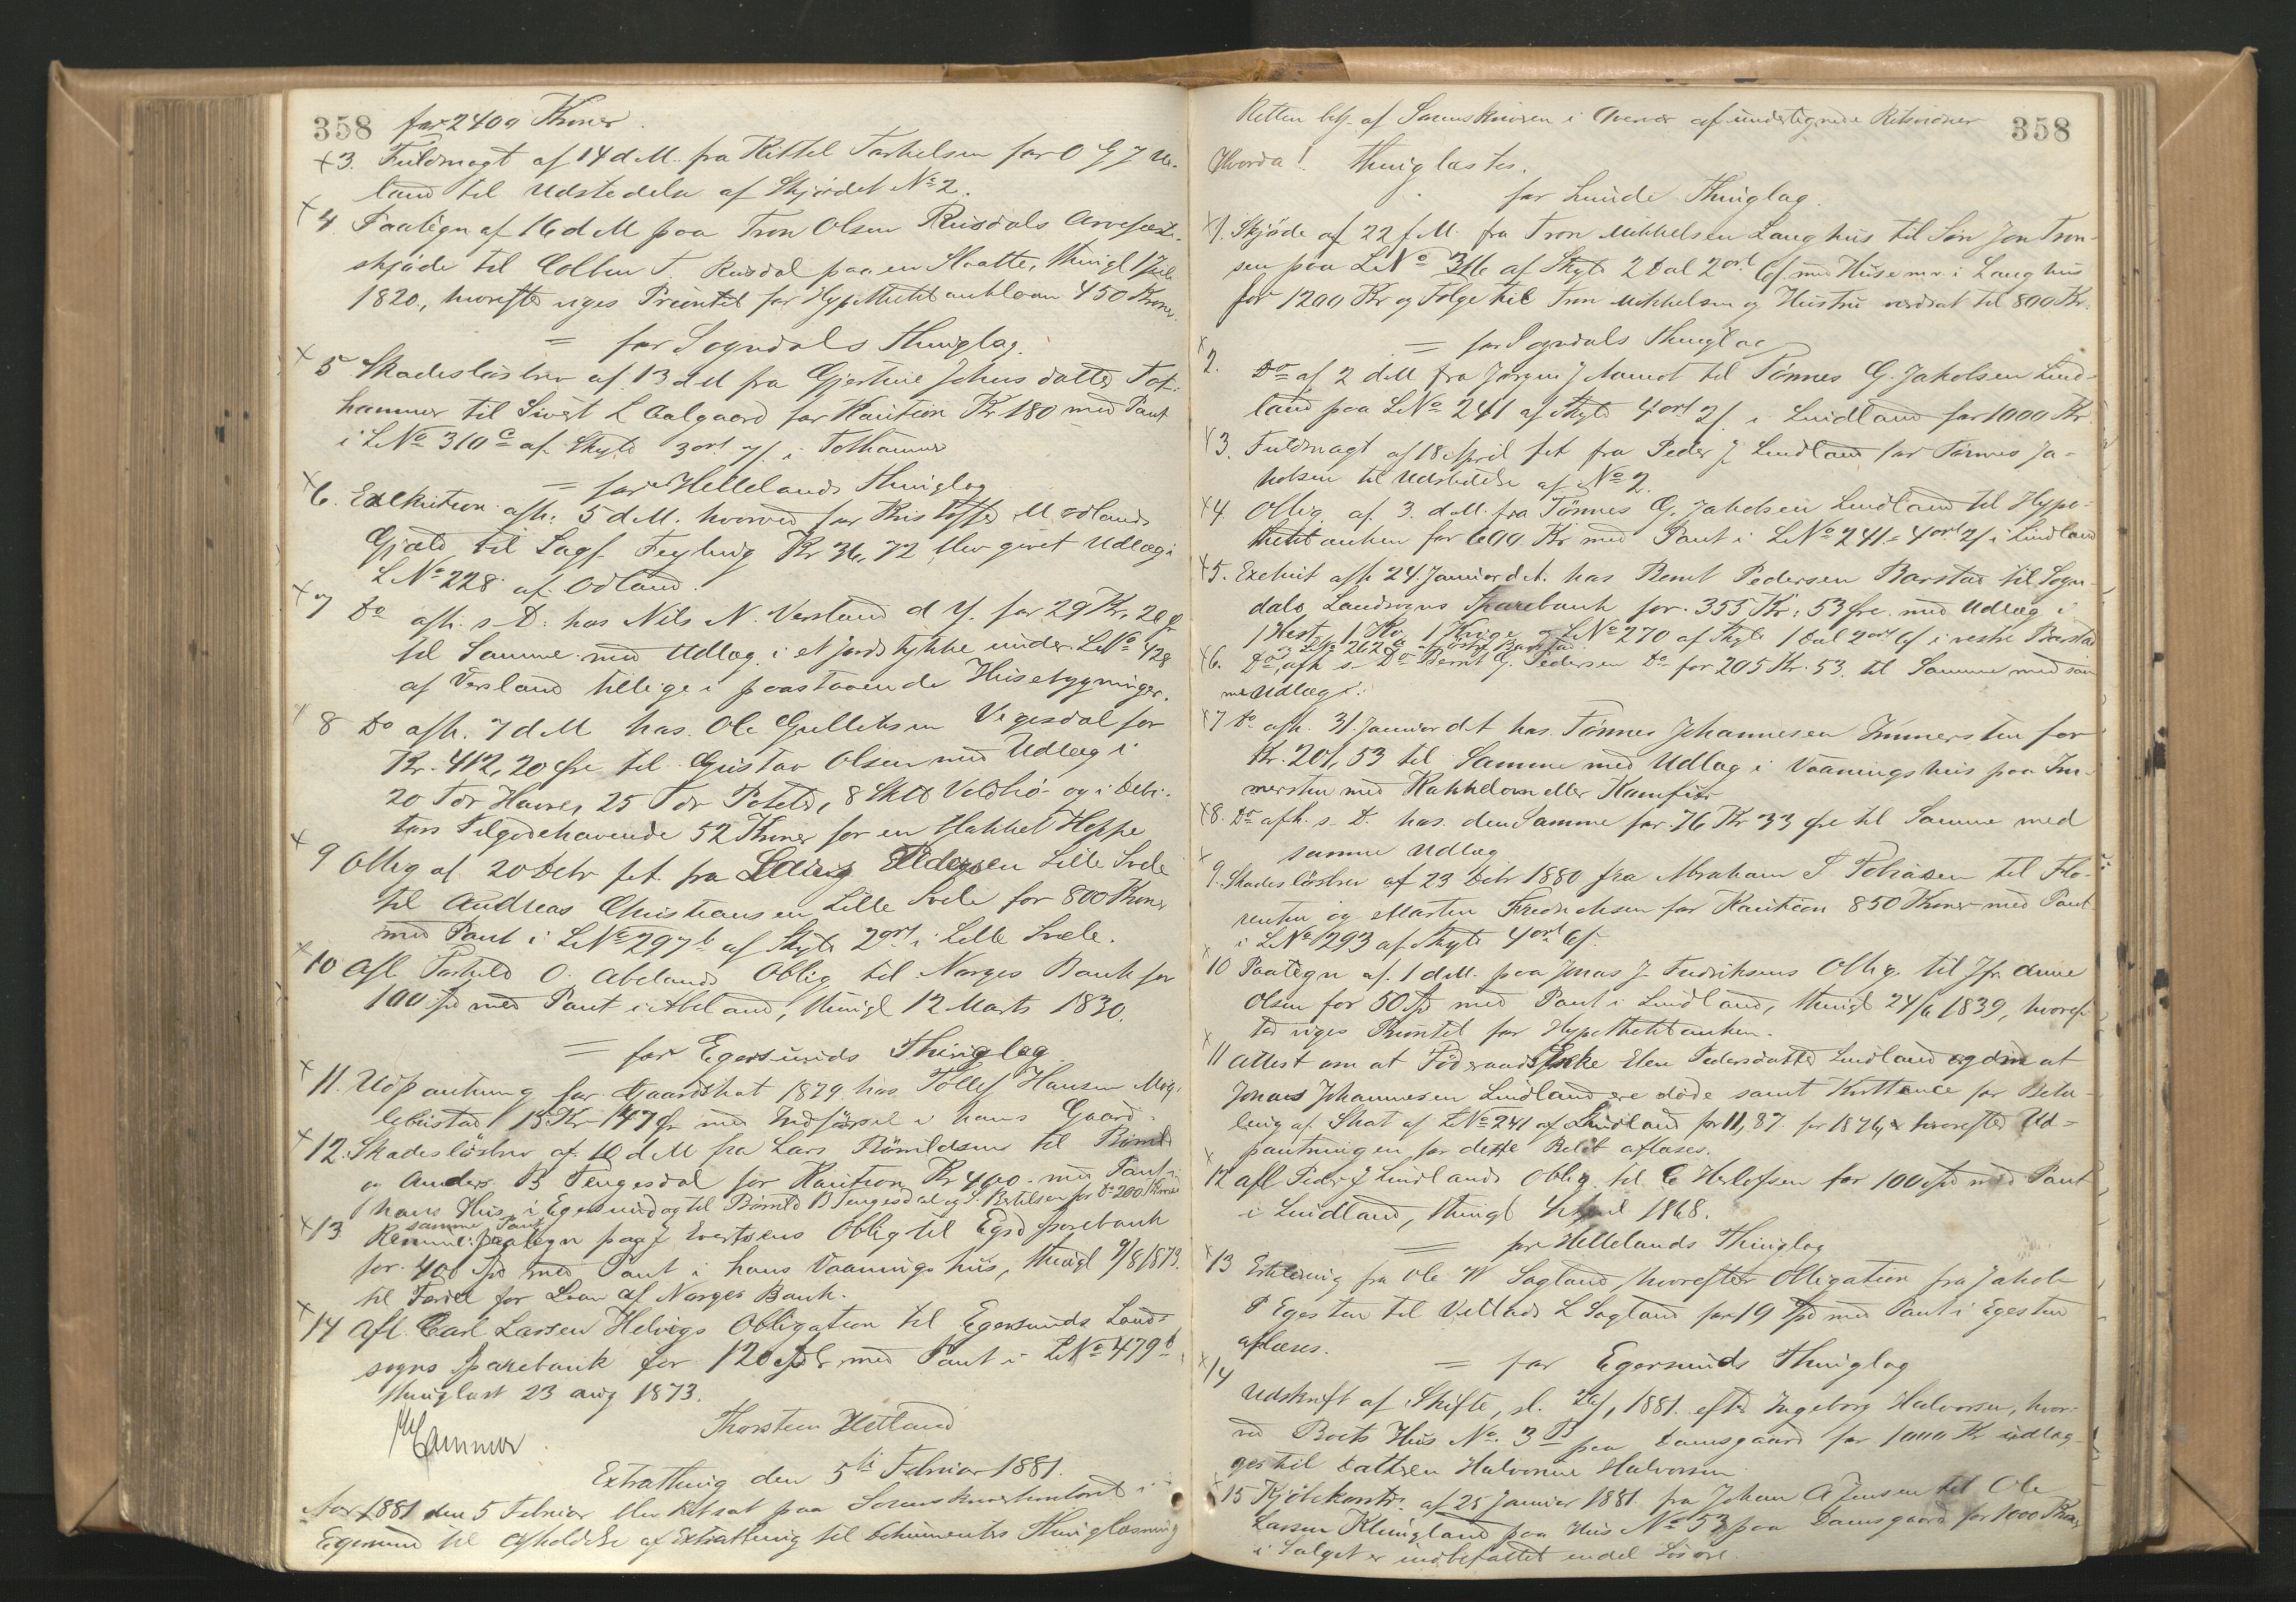 358 for 2400 Kroner.
+3. Fuldmagt af 14 d M. fra Kittel Tarkelsen for O G J Ue-
land til Udstedelse af Skjødet No 2.
+4 Paategn af 16 d M paa Tron Olsen Rusdals Arvefæste-
skjøde til Colben T. Rusdal paa en Slaatte, thingl 1 Juli
1820, hvorefter viges Prioritet for Hypothekbanklaan 450 Kroner.
= for Sogndals Thinglag.
+5 Skadesløsbrev af 13 d M fra Gjertine Johnsdatter Tot-
hammer til Sivert L Aalgaard for Kaution Kr 180 med Pant
i LNo 310c af Skyld 3 ort 7 s. i Tothammer
= for Hellelands Thinglag
+6. Exekution afh. 5 d M. hvorved for Kristoffer M Odlands
Gjæld til Sagf. Feyling Kr 36,72 blev givet Udlæg i
LNo 228 af Odland.
+7 Do afh. s. D. hos Nils N. Versland d y. for 29 Kr. 20 Ø
til Samme med Udlæg i et Jordstykke under LNo 428
af Versland tillige i paastaaende Husebygninger.
+8 Do afh. 7 d M hos Ole Gulleksen Vigesdal for
Kr. 412,20 Øre til Gustav Olsen med Udlæg i
20 Tdr Havre, 25 Tdr Poteter, 8 Skd Voldhø og i Debi-
tors Tilgodehavende 52 Kroner for en Hakket Hoppe
+9 Oblig af 20 Debr f.A. fra Pedersen Lille Svele
til Andreas Christiansen Lille Svele for 800 Kroner
med Pant i LNo 297b af Skyld 2 ort i Lille Svele.
+10 Afl Torkild O. Abelands Oblig til Norges Bank for
100 Spd med Pant i Abeland, thingl 12 Marts 1830.
= for Egersunds Thinglag
+11. Udpantning for Gaardskat 1879 hos Tollef Hansen Mög-
lebustad 15 Kr 47 Ør med Indførsel i hans Gaard.
+12. Skadesløsbrev af 10 d M fra Lars Römildsen til Römild
og Anders B Tengesdal for Kaution Kr 400 med Pant i
hans Hus i Egersund og til Römild B Tengesdal og S. Bertelsen for Do 200 Kroner
samme Pant
+13 paategn paa J Evertsens Oblig til Egsd Sparebank
for 400 Spd med Pant i hans Vaaningshus, thingl 9/8 1873.
til Fordel for Laan af Norges Bank.
+14 Afl. Carl Larsen Helvigs Obligation til Egersunds Land-
sogns Sparebank for 120 Spd med Pant i LNo 479b,
thinglæst 23 Aug 1873.
Thorsten Hetland
Extrathing den 5te Februar 1881.
Aar 1881 den 5 Februar blev Ret sat paa Sorenskriverkontoret i
Egersund til Afholdelse af Extrathing til Dokumenters Thinglæsning
Retten bes. af Sorenskriveren i Overvær af undertegnede Retsvidner 358
Hvorda! thinglæstes.
for Lunde Thinglag.
+1. Skjøde af 22 f M. fra Tron Mikkelsen Langhus til Søn Jon Tron-
sen paa LNo 316 af Skyld 2 Dal 2 ort 6 s med Huse m.v. i Langhus
for 1200 Kr og Følge til Tron Mikkelsen og Hustru verdsat til 800 Kr.
= for Sogndals Thinglag
+
2. Do af 2 d M fra Jørgen J Aamot til Tönnes G. Jakobsen Lind-
land paa LNo 241 af Skyld 4 ort 2 s. i Lindland for 1000 Kr.
+3. Fuldmagt af 18 April f A fra Peder J Lindland for Tönnes Ja-
kobsen til Udstedelse af No 2.
+4 Oblig af 3. d M. fra Tönnes G. Jakobsen Lindland til Hypo-
thekbanken for 600 Kr med Pant i LNo 241 = 4 ort 2 s i Lindland
+5. Exekut afh 24 Januar d A. hos Bernt Pedersen Barstad til Sogn-
dals Landsogns Sparebank for 355 Kr. 53 Øre med Udlæg i
1 Hest, 1 Ko, 1 Kvige og LNo 270 af Skyld 1 Dal 2 ort 6 s i vestre Barstad
LNo 262a östre Barstad.
+6. Do afh s. Do Bernt G. Pedersen Do for 205 Kr. 53. til Samme med sam
me Udlæg.
+7 Do afh. 31 Januar d A hos Tönnes Johannesen Immersten for
Kr. 201,53 til Samme med Udlæg i Vaaningshus paa Im-
mersten med Kakkelovn eller Komfur
+8. Do afh. s. D. hos den Samme for 76 Kr 33 Øre til Samme med
samme Udlæg
+
9. Skadesløsbrev af 23 Debr 1880 fra Abraham T Tobiasen til Flo-
rentin og Martin Fredriksen for Kaution 850 Kroner med Pant
i LNo 293 af Skyld 4 ort 6 s.
+
10 Paategn af 1 d M. paa Jonas J. Fredriksens Oblig. til Jfr. Anne
Olsen for 50 Spd med Pant i Lindland, thingl 24/6 1839, hvoref-
ter viges Prioritet for Hypothekbanken.
+
11 Attest om at Föderaadsenke Elen Pedersdatter Lindland og om at
Jonas Johannesen Lindland ere döde samt Kvittance for Beta-
ling af Skat af LNo 241 af Lindland for 11,87. for 1876, hvorefter Ud-
pantningen for dette Beløb aflæses.
+
12 Afl Peder J Lindlands Oblig. til C Herlofsen for 100 Spd med Pant
i Lindland, thingl April 1868.
= for Hellelands Thinglag
+13 Erklæring fra Ole W Sagland hvorefter Obligation fra Jakob
P Egesten til Vellads L Sagland for 19 Spd med Pant i Egesten
aflæses.
= for Egersunds Thinglag
+14
Udskrift af Skifte, sl. 26/1 1881 efter Ingeborg Halvorsen, hvor-
ved Boets Hus No. 3B paa Damsgaard for 1000 Kr udlæg-
ges til Datteren Halvorine Halvorsen
+15 Kjöbekontr. af 25 Januar 1881 fra Johan A Jensen til Ole
Larsen Klungland paa Hus No 53 paa Damsgaard for 1000 Kroner
i Salget er indbefattet endel Lösöre.